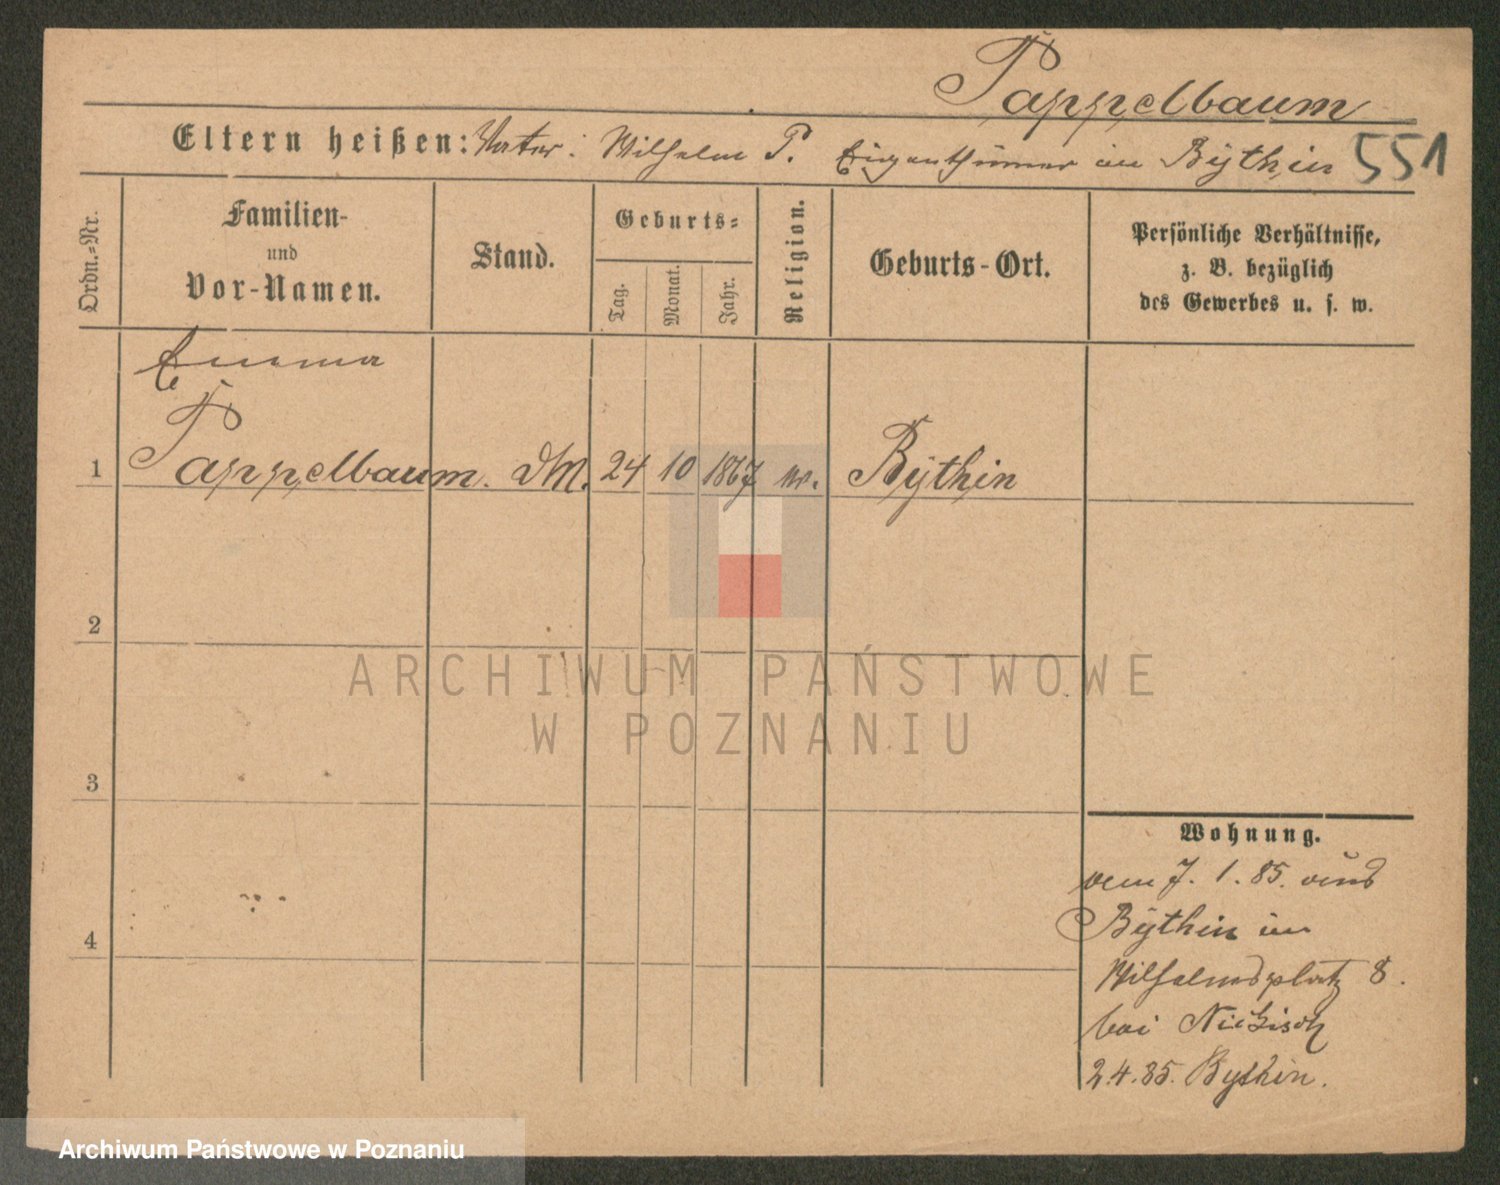 Pappelbaum
Eltern heißen: Vater: Wilhelm P. Eigenthümer in Bythin 551
Ordn.=Nr.
Familien-
und
Vor-Namen.
Stand.
Geburts=
Tag.
Monat.
Jahr.
Religion.
Geburts-Ort.
Persönliche Verhältnisse,
z. B. bezüglich
des Gewerbes u. s. w.
Emma
1 Pappelbaum. DM. 24 10 1867 ev. Bythin
2
3
4
ARCHIWUM PAŃSTWOWE
W POZNANIU
Wohnung.
vom 7. 1. 85. aus
Bythin in
Wilhelmsplatz 8.
bei Nickisch
2.4.85. Bythin.
Archiwum Państwowe w Poznaniu